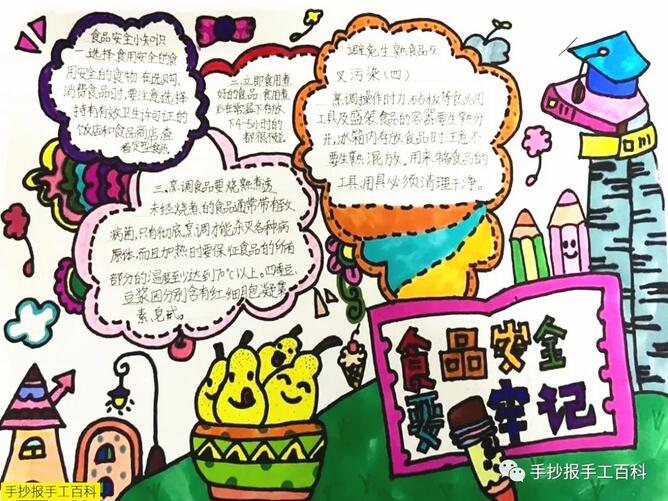 食品安全小知识
一.选择食用安全的食
用安全的食物.在选购、
消费食品时,要注意选择
持有有效卫生许可证的
饭店和食品商店,查
看定型食品
二.立即食用煮
好的食品:食用煮
后在常温下存放
下4-5小时的
都很不短。
三.烹调食品要烧熟煮透
未经烧煮的食品通常带有致
病菌,只有彻底烹调才能杀灭各种病
原体,而且加热时要保证食品的所有
部分的温度至少达到70℃以上。四季豆、
豆浆因分别含有红细胞凝集
素、皂甙。
避免生熟食品交
叉污染(四)
烹调操作时刀、砧板等食品用
工具及盛装食品的容器要生熟分
开,冰箱内存放食品时注意不
要生熟混放,用来准备食品的
工具、用具必须清理干净。
食品安全
要牢记
手抄报手工百科
手抄报手工百科